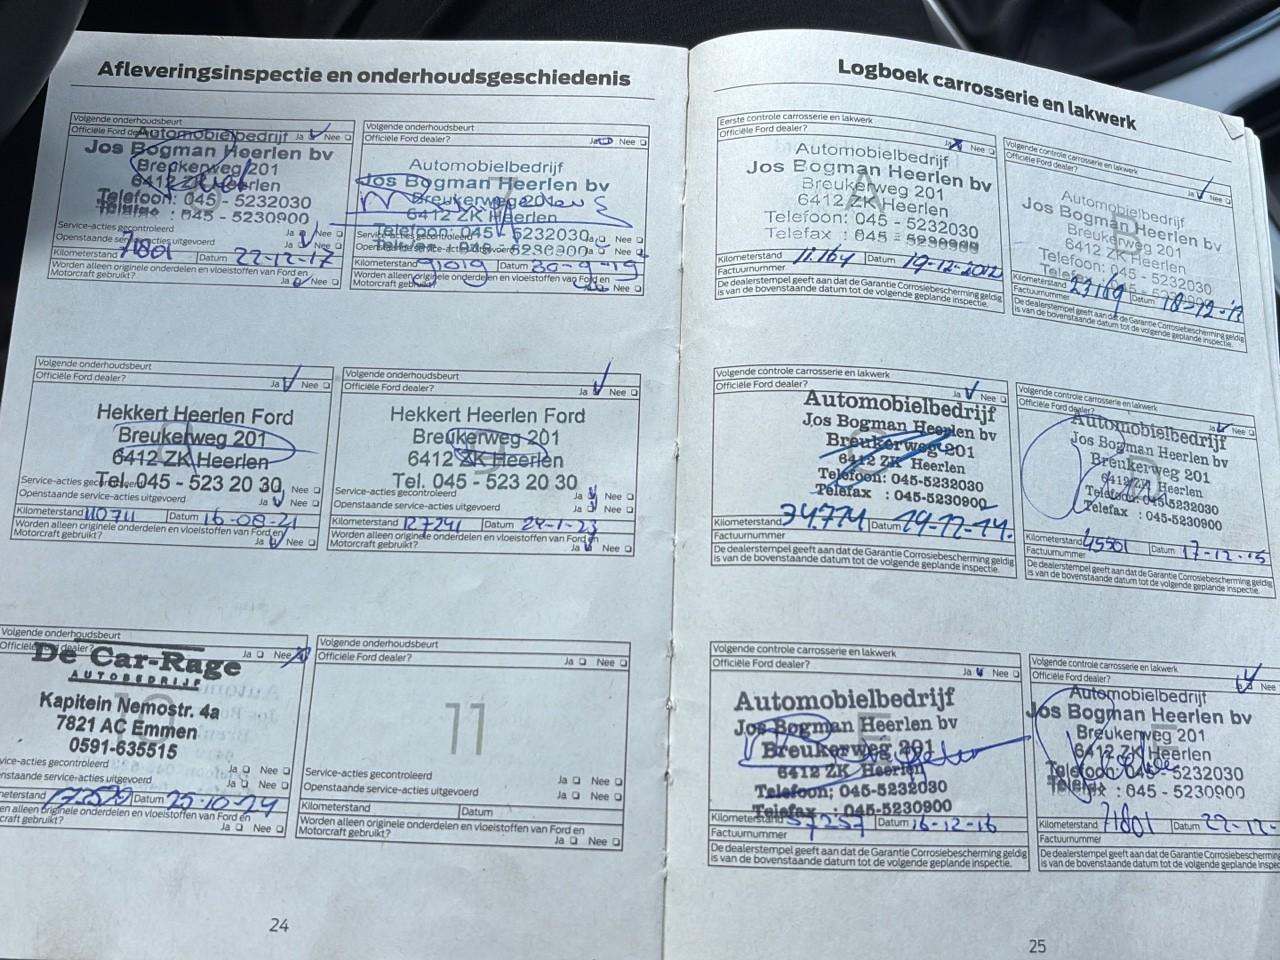 Afleveringsinspectie en onderhoudsgeschiedenis
Volgende onderhoudsbeurt
Officiële Ford dealer? Ja Nee
Automobielbedrijf
Jos Bogman Heerlen bv
Breukerweg 201
6412 ZK Heerlen
Telefoon: 045 - 5232030
Telefax : 045 - 5230900
Service-acties gecontroleerd Ja Nee
Openstaande service-acties uitgevoerd Ja Nee
Kilometerstand 71801 Datum 22-12-17
Worden alleen originele onderdelen en vloeistoffen van Ford en
Motorcraft gebruikt? Ja Nee
Volgende onderhoudsbeurt
Officiële Ford dealer? Ja Nee
Automobielbedrijf
Jos Bogman Heerlen bv
Breukerweg 201
6412 ZK Heerlen
Telefoon: 045 - 5232030
Telefax : 045 - 5230900
Service-acties gecontroleerd Ja Nee
Openstaande service-acties uitgevoerd Ja Nee
Kilometerstand 91019 Datum 30-9-19
Worden alleen originele onderdelen en vloeistoffen van Ford en
Motorcraft gebruikt? Nee
Volgende onderhoudsbeurt
Officiële Ford dealer? Ja Nee
Hekkert Heerlen Ford
Breukerweg 201
6412 ZK Heerlen
Tel. 045 - 523 20 30
Service-acties gecontroleerd Nee
Openstaande service-acties uitgevoerd Ja Nee
Kilometerstand 110711 Datum 16-08-21
Worden alleen originele onderdelen en vloeistoffen van Ford en
Motorcraft gebruikt? Ja Nee
Volgende onderhoudsbeurt
Officiële Ford dealer? Ja Nee
Hekkert Heerlen Ford
Breukerweg 201
6412 ZK Heerlen
Tel. 045 - 523 20 30
Service-acties gecontroleerd Ja Nee
Openstaande service-acties uitgevoerd Ja Nee
Kilometerstand 127241 Datum 24-1-23
Worden alleen originele onderdelen en vloeistoffen van Ford en
Motorcraft gebruikt? Ja Nee
Volgende onderhoudsbeurt
Officiële Ford dealer? Ja Nee
De Car-Rage
AUTOBEDRIJF
Kapitein Nemostr. 4a
7821 AC Emmen
0591-635515
vice-acties gecontroleerd Ja Nee
nstaande service-acties uitgevoerd Ja Nee
meterstand Datum 25-10-24
en alleen originele onderdelen en vloeistoffen van Ford en
craft gebruikt? Ja Nee
Volgende onderhoudsbeurt
Officiële Ford dealer? Ja Nee
11
Service-acties gecontroleerd Ja Nee
Openstaande service-acties uitgevoerd Ja Nee
Kilometerstand Datum
Worden alleen originele onderdelen en vloeistoffen van Ford en
Motorcraft gebruikt? Ja Nee
24
Logboek carrosserie en lakwerk
Eerste controle carrosserie en lakwerk
Officiële Ford dealer? Ja Nee
Automobielbedrijf
Jos Bogman Heerlen bv
Breukerweg 201
6412 ZK Heerlen
Telefoon: 045 - 5232030
Telefax : 045 - 5230900
Kilometerstand 11.164 Datum 19-12-2012
Factuurnummer
De dealerstempel geeft aan dat de Garantie Corrosiebescherming geldig
is van de bovenstaande datum tot de volgende geplande inspectie.
Volgende controle carrosserie en lakwerk
Officiële Ford dealer? Ja Nee
Automobielbedrijf
Jos Bogman Heerlen bv
Breukerweg 201
6412 ZK Heerlen
Telefoon: 045 - 5232030
Telefax : 045 - 5230900
Kilometerstand 23169 Datum
Factuurnummer
De dealerstempel geeft aan dat de Garantie Corrosiebescherming geldig
is van de bovenstaande datum tot de volgende geplande inspectie.
Volgende controle carrosserie en lakwerk
Officiële Ford dealer? Ja Nee
Automobielbedrijf
Jos Bogman Heerlen bv
Breukerweg 201
6412 ZK Heerlen
Telefoon: 045-5232030
Telefax : 045-5230900
Kilometerstand 34.774 Datum 19-12-14.
Factuurnummer
De dealerstempel geeft aan dat de Garantie Corrosiebescherming geldig
is van de bovenstaande datum tot de volgende geplande inspectie.
Volgende controle carrosserie en lakwerk
Officiële Ford dealer? Ja Nee
Automobielbedrijf
Jos Bogman Heerlen bv
Breukerweg 201
6412 ZK Heerlen
Telefoon: 045-5232030
Telefax : 045-5230900
Kilometerstand 45501 Datum 17-12-15
Factuurnummer
De dealerstempel geeft aan dat de Garantie Corrosiebescherming geldig
is van de bovenstaande datum tot de volgende geplande inspectie.
Volgende controle carrosserie en lakwerk
Officiële Ford dealer? Ja Nee
Automobielbedrijf
Jos Bogman Heerlen bv
Breukerweg 201
6412 ZK Heerlen
Telefoon: 045-5232030
Telefax : 045-5230900
Kilometerstand 57237 Datum 16-12-16
Factuurnummer
De dealerstempel geeft aan dat de Garantie Corrosiebescherming geldig
is van de bovenstaande datum tot de volgende geplande inspectie.
Volgende controle carrosserie en lakwerk
Officiële Ford dealer? Nee
Automobielbedrijf
Jos Bogman Heerlen bv
Breukerweg 201
6412 ZK Heerlen
Telefoon: 045 - 5232030
Telefax : 045 - 5230900
Kilometerstand 71801 Datum 22-12-
Factuurnummer
De dealerstempel geeft aan dat de Garantie Corrosiebescherming
is van de bovenstaande datum tot de volgende geplande inspectie.
25